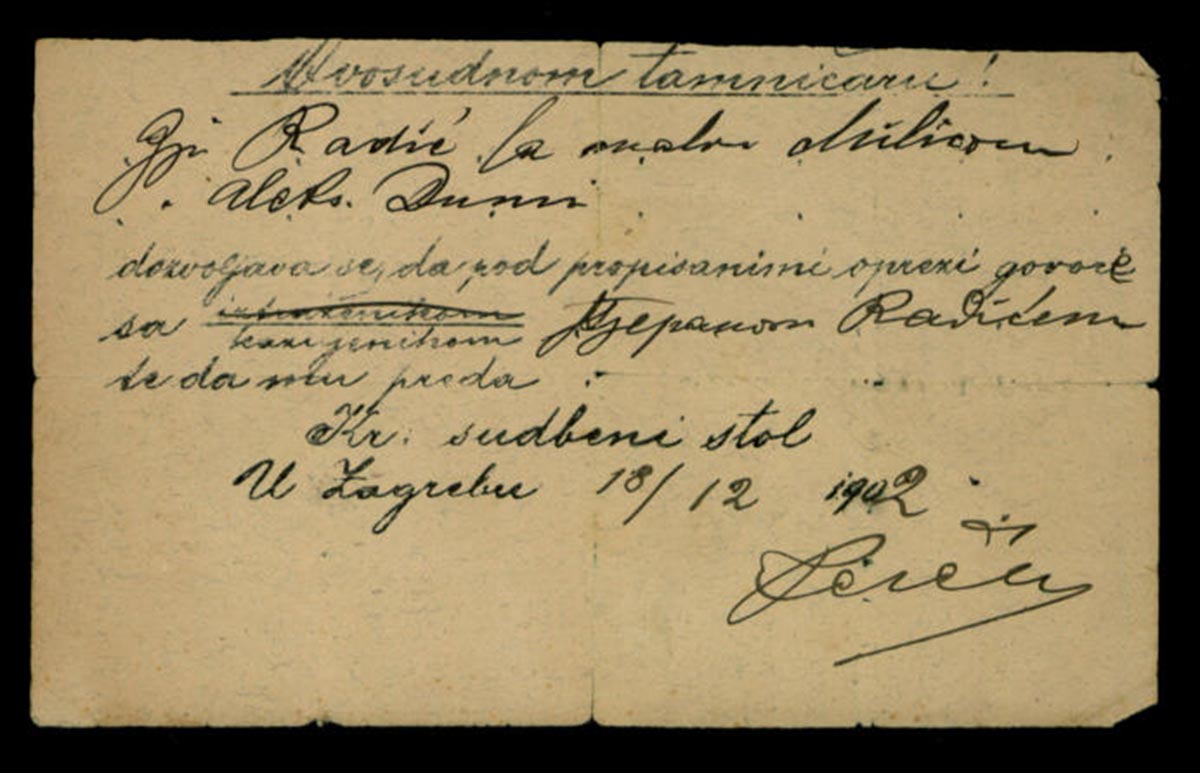 Ovosudnom tamničaru!
Gji Radić sa malom Milicom
i Aleks.
dozvoljava se, da pod propisanimi oprezi govore
sa iztraženikom
kažnjenikom Stjepanom Radićem
te da mu preda
Kr. sudbeni stol
U Zagrebu 18/12 1902